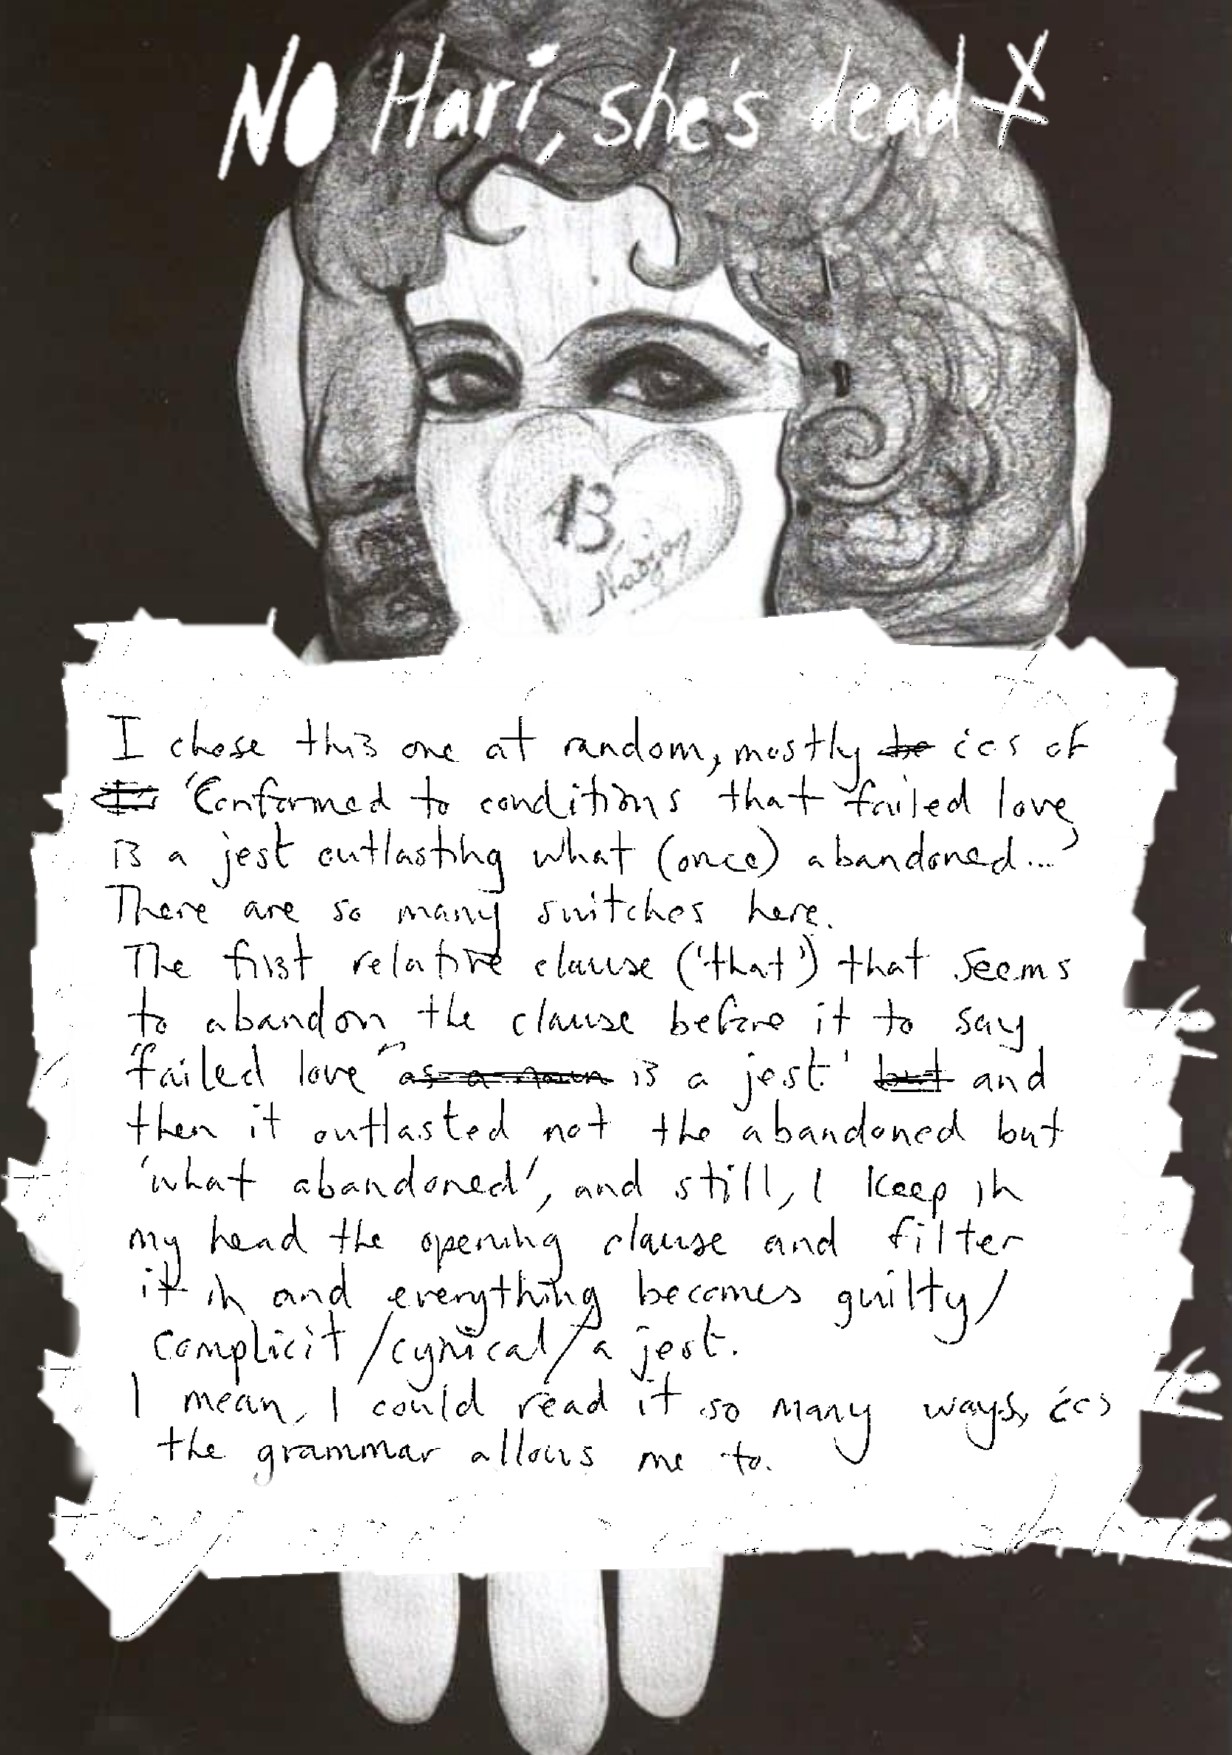 NO Hari, she's dead X
13
Nadja
I chose this one at random, mostly be ccs of
'Conformed to conditions that failed love
is a jest outlasting what (once) abandoned...'
There are so many switches here.
The first relative clause ('that') that seems
to abandon the clause before it to say
'failed love as a noun is a jest' but and
then it outlasted not the abandoned but
'what abandoned', and still, I keep in
my head the opening clause and filter
it in and everything becomes guilty/
complicit/cynical/a jest.
I mean, I could read it so many ways, ccs
the grammar allows me to.